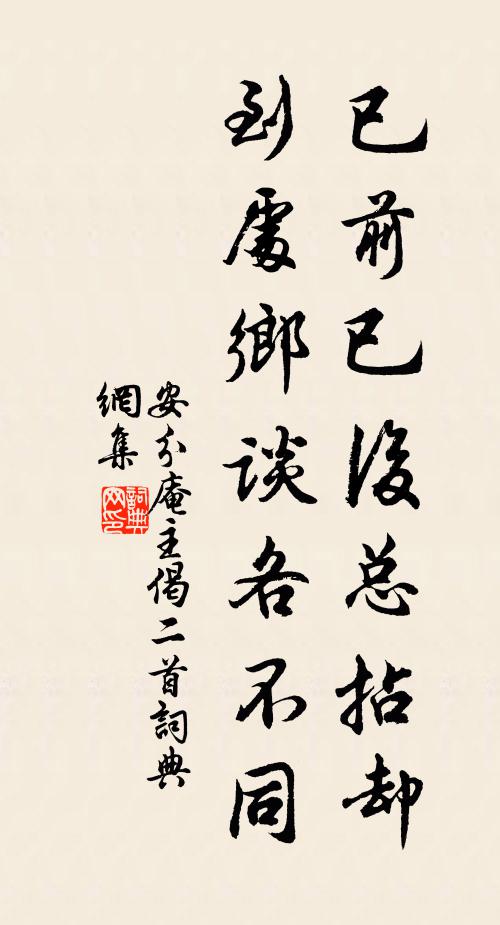 已前已後总拈却
到處鄉談各不同
安分庵主偈二首詞典
網集
詞典網印